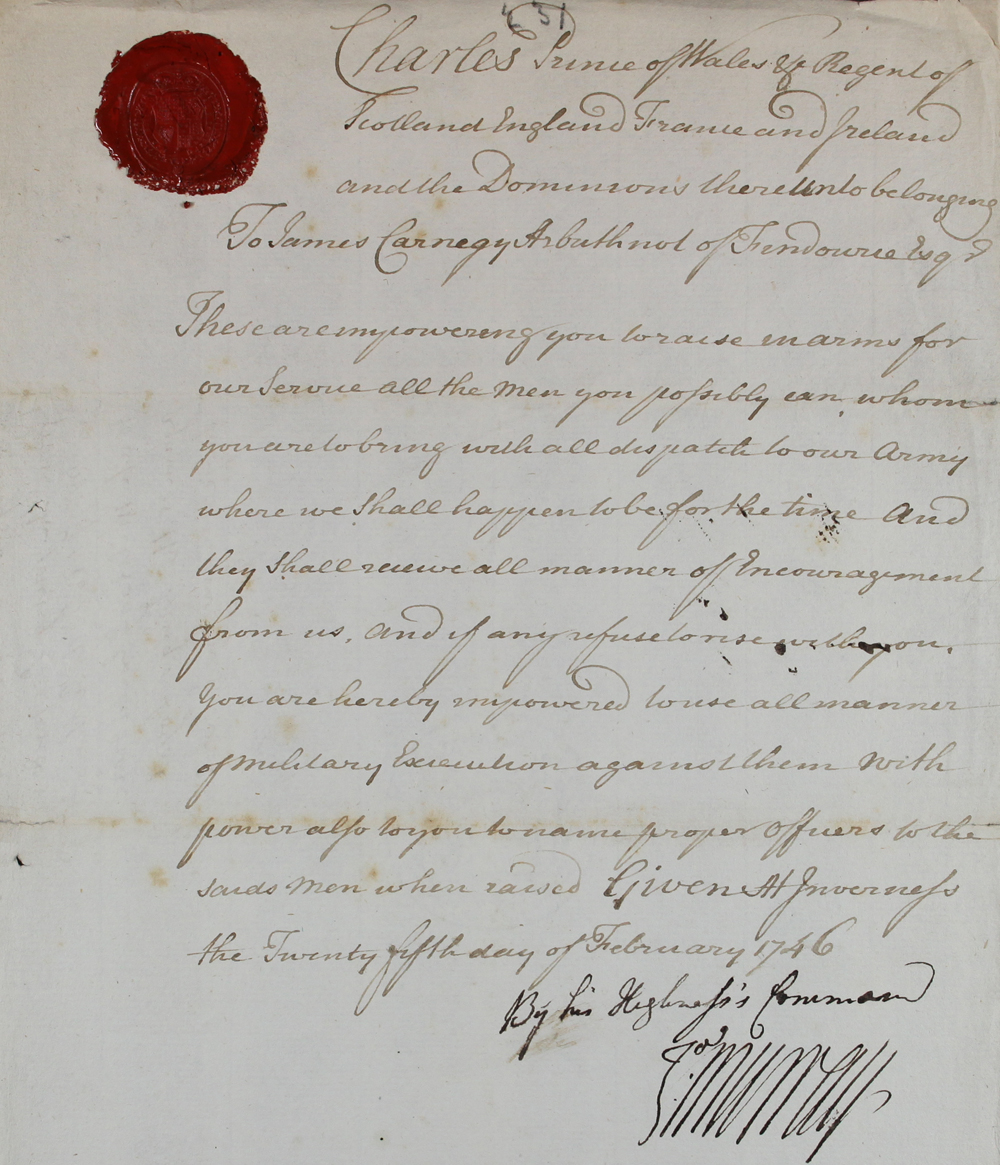 51
Charles Prince of Wales &c Regent of
Scotland England France and Ireland
and the Dominions thereunto belonging
To James Carnegy Arbuthnot of Findowrie Esqr
These are impowereing you to raise in arms for
our Service all the Men you possibly can whom
you are to bring with all dispatch to our Army
where we Shall happen to be for the time And
they Shall receive all manner of Encouragement
from us, And if any refuse to rise with you.
You are hereby impowered to use all manner
of Military Execution against them With
power also to you to name proper Officers to the
saids Men when raised Given At Inverness
the Twenty fifth day of February 1746
By his Highness's Command
Jo: Murray